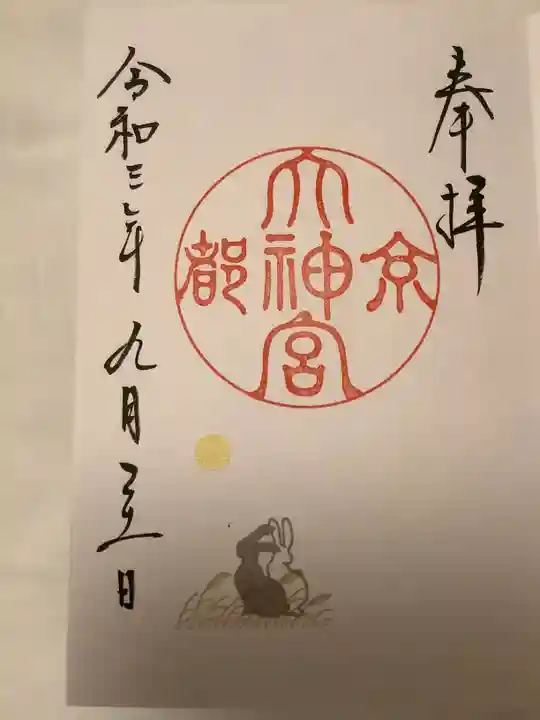 奉拝
京都
大神宮
令和三年九月二十一日